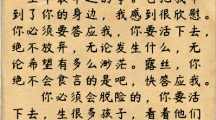 到了你的身边，我感到很欣慰。
你必须要答应我，你要活下去，
绝不放弃，无论发生什么，无
论希望有多么渺茫。露丝，你
绝不会食言的是吧，快答应我。
你必须会脱险的，你要活
下去，生很多孩子，看着他们